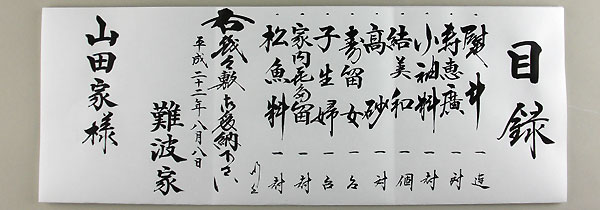 目録
一 熨斗 一 連
一 寿恵廣 一 対
一 小袖料 一 封
一 結美和 一 個
一 高砂 一 対
一 寿留女 一 台
一 子生婦 一 台
一 家内喜多留 一 封
一 松魚料 一 封
右幾久敷御受納下さい
平成二十二年八月八日
難波家
山田家様